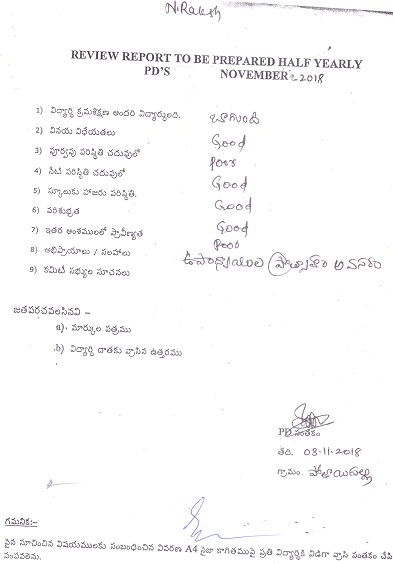 N. Rakesh
REVIEW REPORT TO BE PREPARED HALF YEARLY
PD'S NOVEMBER - 2018
1) విద్యార్థి క్రమశిక్షణ అందరి విద్యార్థులది. బాగుంది
2) వినయ విధేయతలు Good
3) పూర్వపు పరిస్థితి చదువులో poor
4) నేటి పరిస్థితి చదువులో Good
5) స్కూలుకు హాజరు పరిస్థితి. Good
6) పరిశుభ్రత Good
7) ఇతర అంశములలో ప్రావీణ్యత poor
8) అభిప్రాయాలు / సలహాలు ఉపాధ్యాయుల ప్రోత్సాహం అవసరం
9) కమిటీ సభ్యుల సూచనలు
జతపరచవలసినవి –
a). మార్కుల పత్రము
b) విద్యార్థి దాతకు వ్రాసిన ఉత్తరము
PD సంతకం
తేది. 08.11.2018
గ్రామం
గమనిక:–
పైన సూచించిన విషయములకు సంబంధించిన వివరణ A4 సైజు కాగితముపై ప్రతి విద్యార్థికి విడిగా వ్రాసి సంతకం చేసి
పంపవలెను.